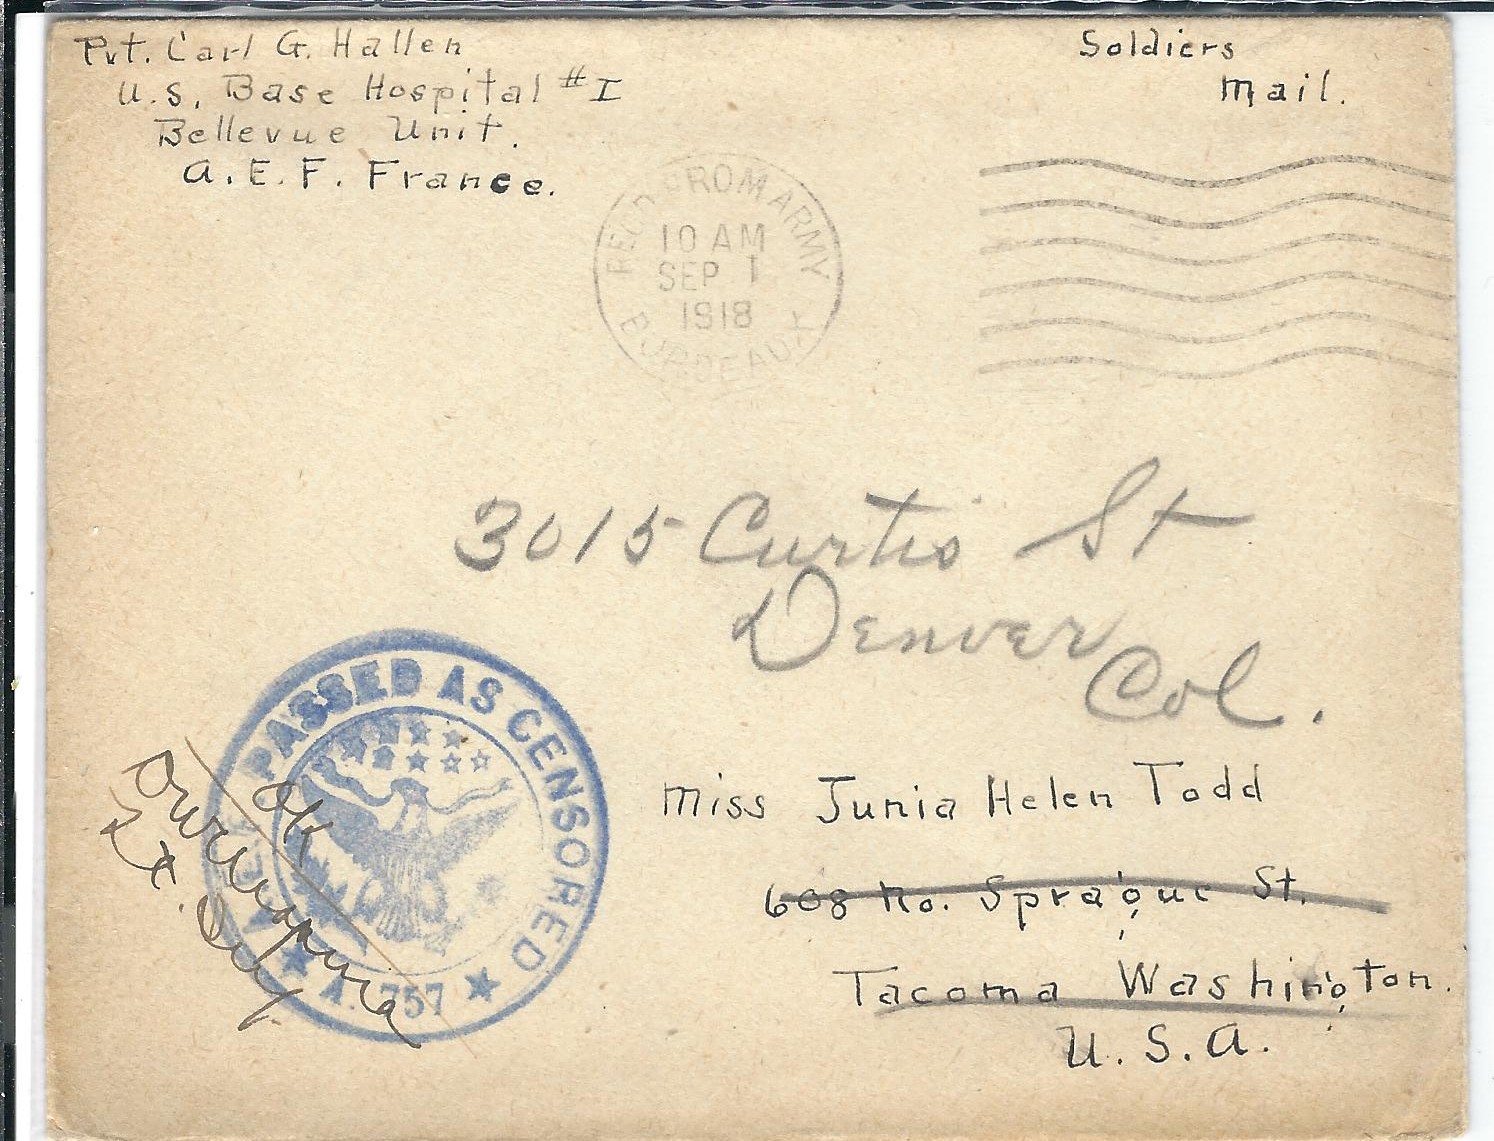 Pvt. Carl G. Hallen
U.S. Base Hospital #I
Bellevue Unit.
A.E.F. France.
Soldiers
Mail.
REC'D FROM ARMY
10 AM
SEP 1
1918
BORDEAUX
3015 Curtis St
Denver
Col.
PASSED AS CENSORED
A.E.F.
A. 757
OK
Lt.
Miss Junia Helen Todd
608 No. Sprague St.
Tacoma Washington.
U.S.A.